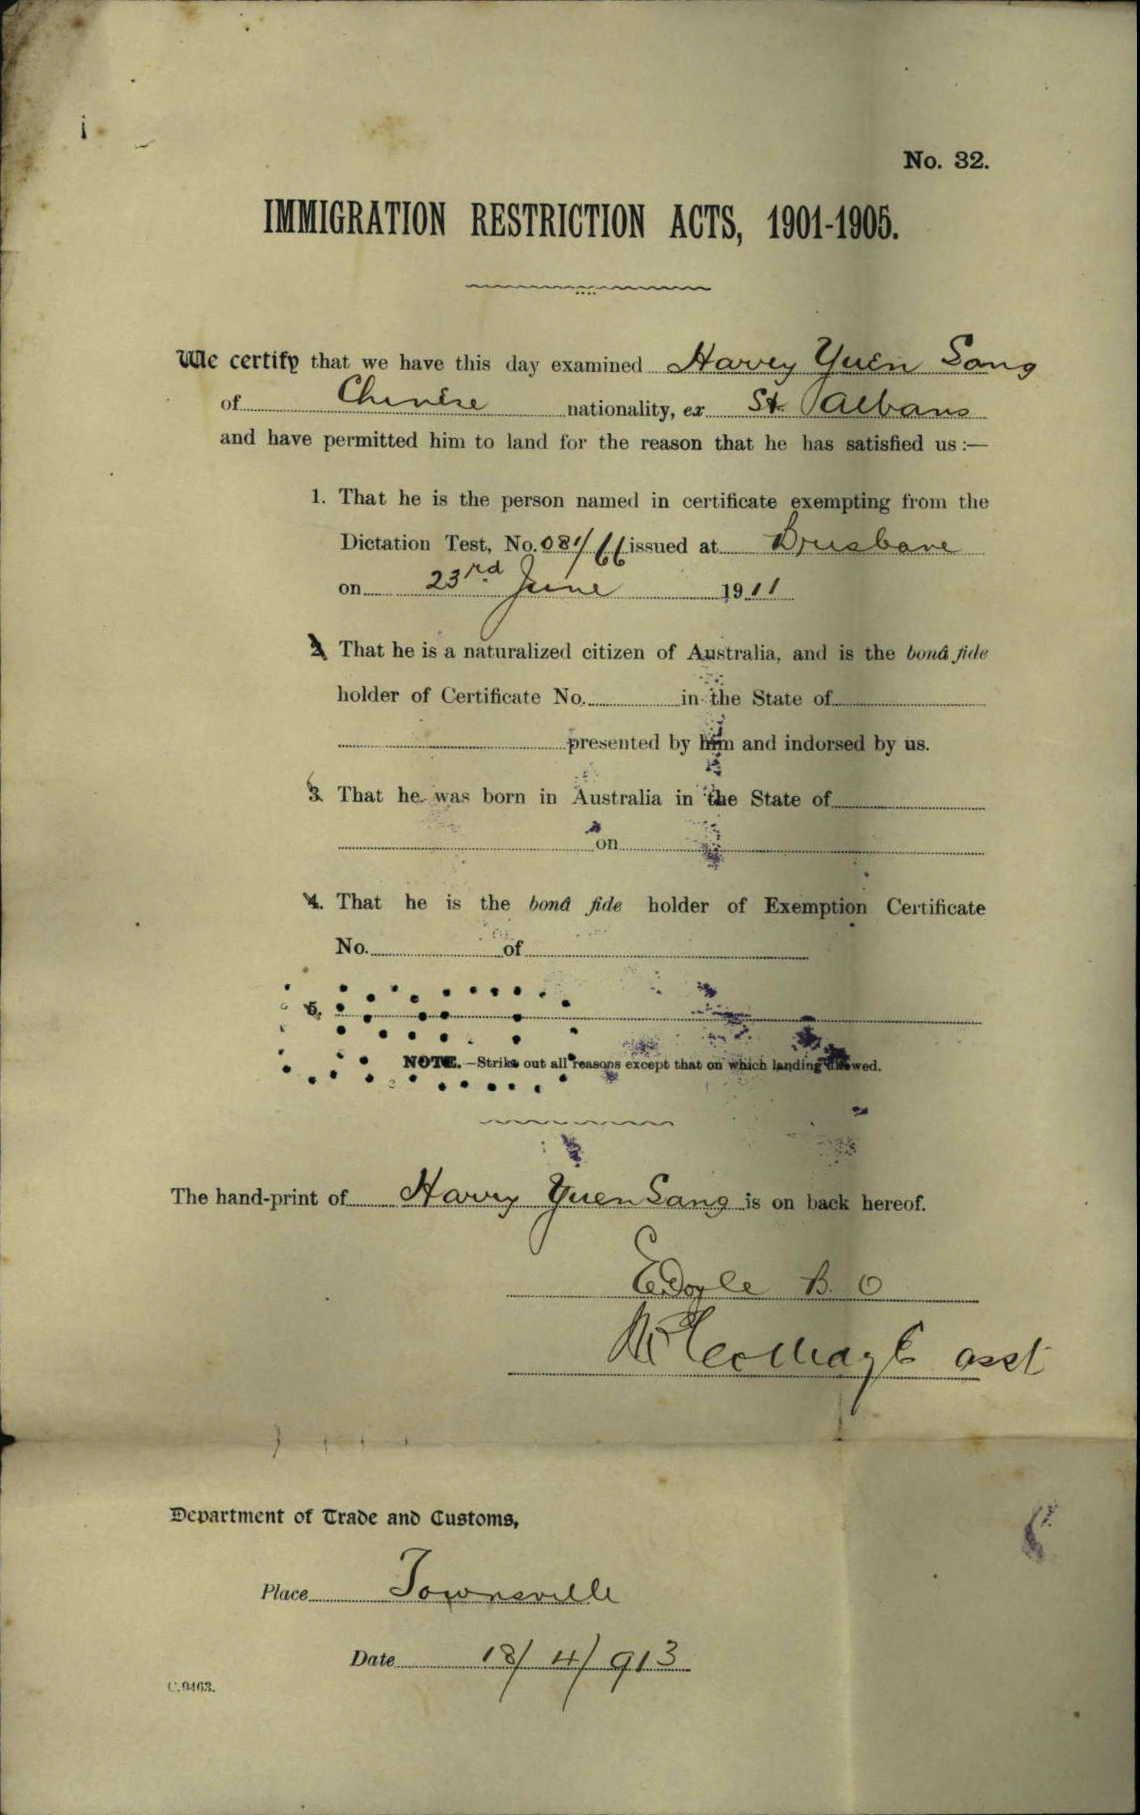 No. 32.
IMMIGRATION RESTRICTION ACTS, 1901-1905.
We certify that we have this day examined Harvey Yuen Sang
of Chinese nationality, ex St. Albans
and have permitted him to land for the reason that he has satisfied us :—
1. That he is the person named in certificate exempting from the
Dictation Test, No. 081/66 issued at Brisbane
on 23rd June 1911
2. That he is a naturalized citizen of Australia, and is the bonâ fide
holder of Certificate No. in the State of
presented by him and indorsed by us.
3. That he was born in Australia in the State of
on
4. That he is the bonâ fide holder of Exemption Certificate
No. of
5.
NOTE.—Strike out all reasons except that on which landing allowed.
The hand-print of Harvey Yuen Sang is on back hereof.
E Doyle B. O
asst
Department of Trade and Customs,
Place Townsville
Date 18/4/913
C.9463.